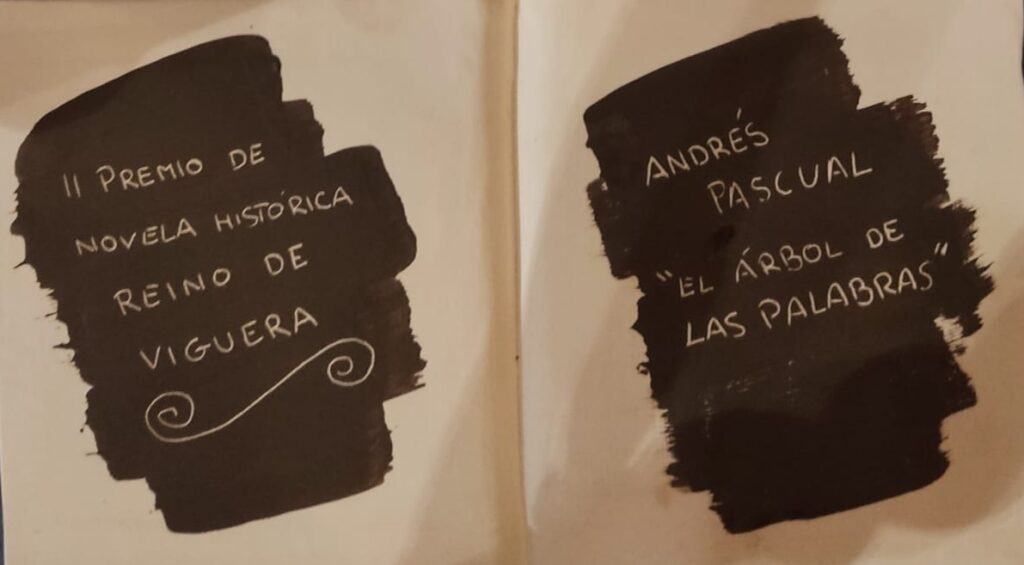 II PREMIO DE
NOVELA HISTÓRICA
REINO DE
VIGUERA
ANDRÉS
PASCUAL
"EL ÁRBOL DE
LAS PALABRAS"